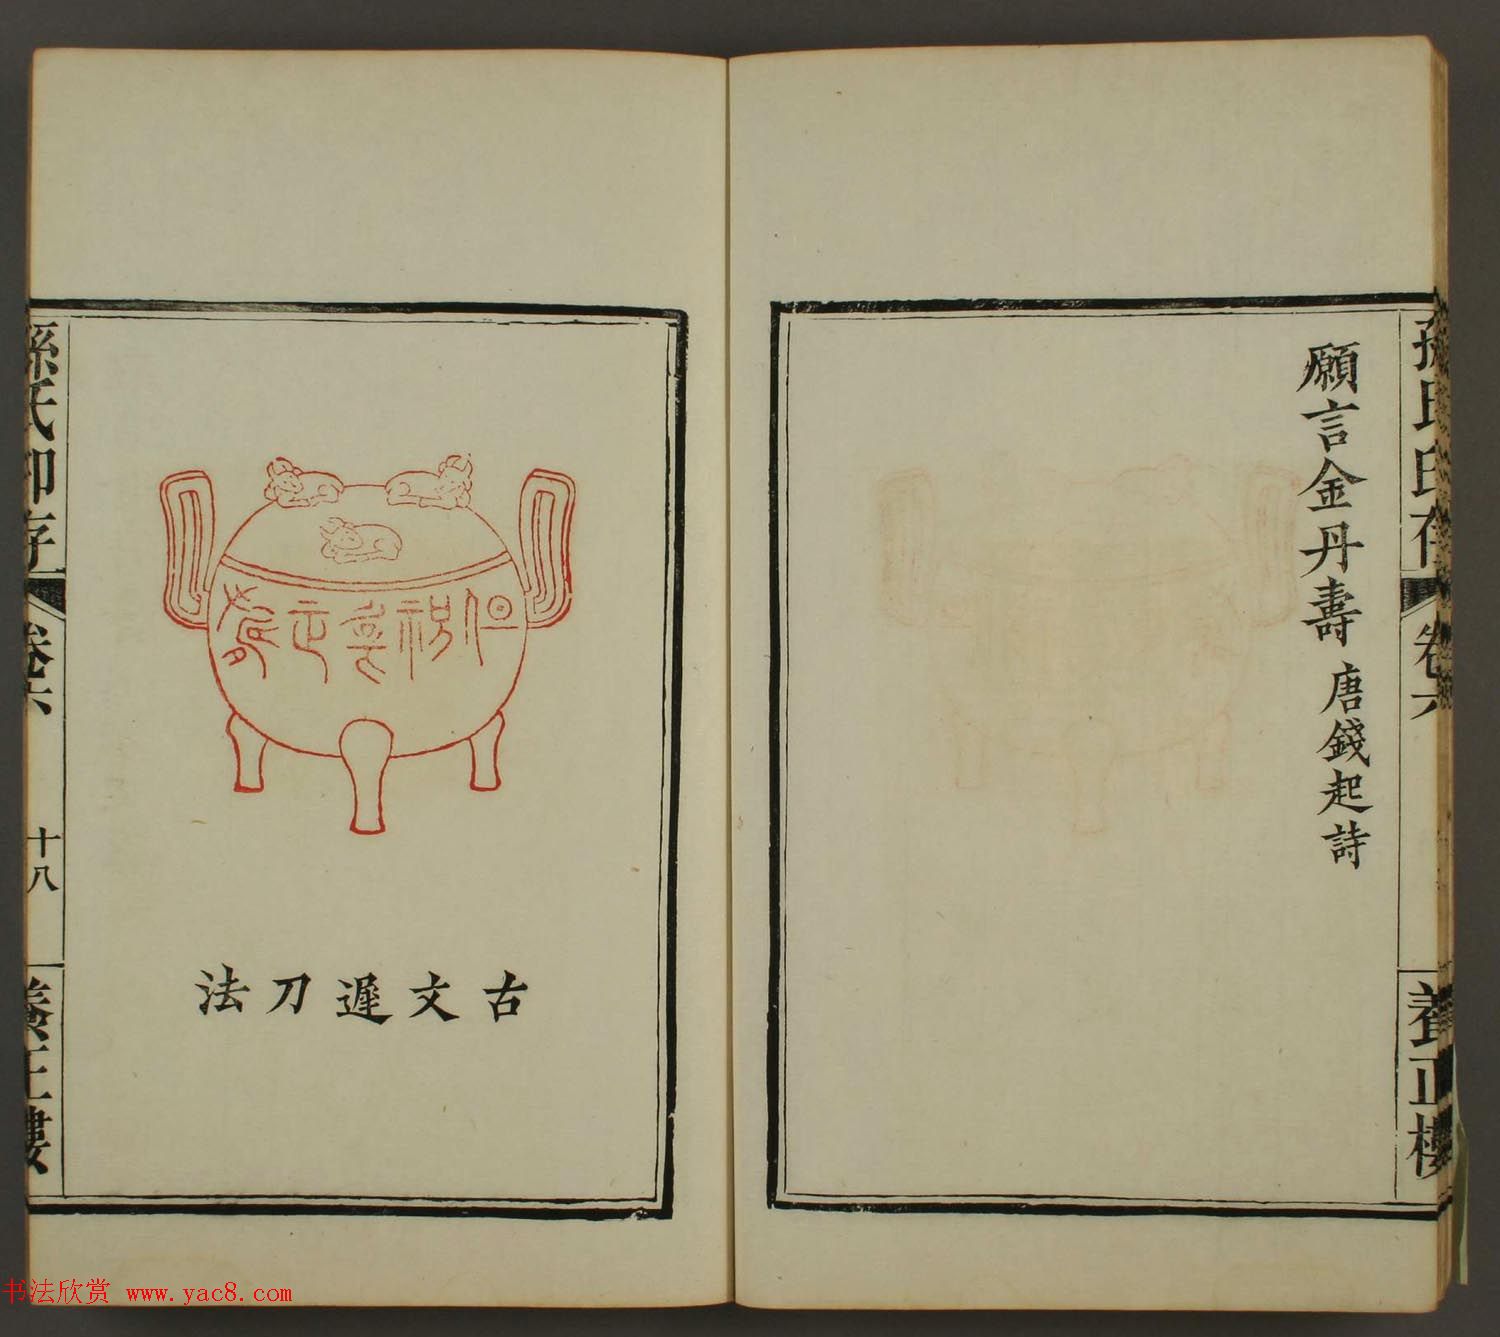 孫氏印存
卷六
養正樓
願言金丹壽 唐錢起詩
古文遲刀法
孫氏印存
卷六
十八
養正樓
书法欣赏 www.yac8.com